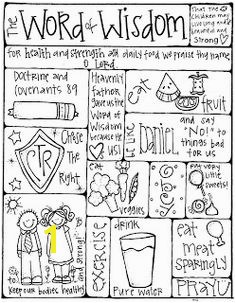 The WORD of WISDOM
that the
Children may
live long and be
beautiful and
Strong
for health and strength and daily food we praise thy name
O Lord.
Doctrine and
Covenants 89
Heavenly
father
gave us the
Word of
Wisdom
because He
♥ us!
eat
fruit
Chose
The
Right
CTR
be like
Daniel
and say
"NO!" to
things bad
for us
eat
veggies
eat very
little
sweets!
to
keep our bodies healthy
and strong!
1
exercise
drink
Pure water
eat
meat
Sparingly
PRAY!